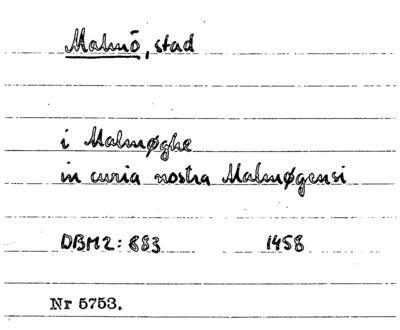 Malmö, stad
i Malmøghe
in curia nostra Malmøgensi
DBM2: 883 1458
Nr 5753.